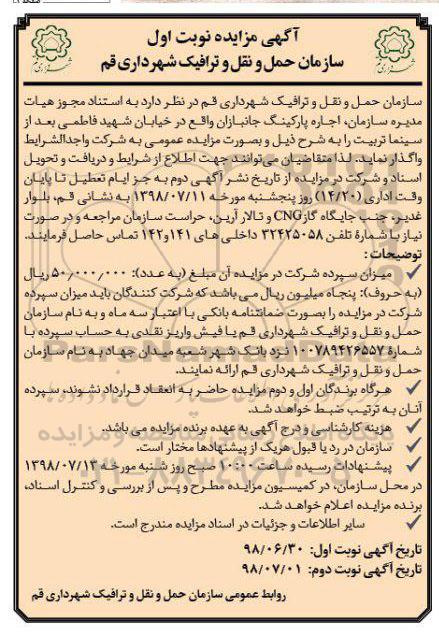 آگهی مزایده نوبت اول
سازمان حمل و نقل و ترافیک شهرداری قم
سازمان حمل و نقل و ترافیک شهرداری قم در نظر دارد به استناد مجوز هیات
مدیره سازمان، اجاره پارکینگ جانبازان واقع در خیابان شهید فاطمی بعد از
سینما تربیت را به شرح ذیل و بصورت مزایده عمومی به شرکت واجدالشرایط
واگذار نماید. لذا متقاضیان می‌توانند جهت اطلاع از شرایط و دریافت و تحویل
اسناد و شرکت در مزایده از تاریخ نشر آگهی دوم به جز ایام تعطیل تا پایان
وقت اداری (۱۴/۲۰) روز پنجشنبه مورخه ۱۳۹۸/۰۷/۱۱ به نشانی قم، بلوار
غدیر، جنب جایگاه گاز CNG و تالار آرین، حراست سازمان مراجعه و در صورت
نیاز با شمارهٔ تلفن ۳۲۴۲۵۰۵۸ داخلی های ۱۴۱و۱۴۲ تماس حاصل فرمایند.
توضیحات:
✓ میزان سپرده شرکت در مزایده آن مبلغ (به عدد): ۵۰,۰۰۰,۰۰۰ ریال
(به حروف): پنجاه میلیون ریال می باشد که شرکت کنندگان باید میزان سپرده
شرکت در مزایده را بصورت ضمانتنامه بانکی با اعتبار سه ماه و به نام سازمان
حمل و نقل و ترافیک شهرداری قم یا فیش واریز نقدی به حساب سپرده با
شمارهٔ ۱۰۰۷۸۹۴۲۶۵۵۷ نزد بانک شهر شعبه میدان جهاد به نام سازمان
حمل و نقل و ترافیک شهرداری قم ارائه نمایند.
✓ هرگاه برندگان اول و دوم مزایده حاضر به انعقاد قرارداد نشوند، سپرده
آنان به ترتیب ضبط خواهد شد.
✓ هزینه کارشناسی و درج آگهی به عهده برنده مزایده می باشد.
✓ سازمان در رد یا قبول هریک از پیشنهادها مختار است.
✓ پیشنهادات رسیده ساعت ۱۰:۰۰ صبح روز شنبه مورخه ۱۳۹۸/۰۷/۱۳
در محل سازمان، در کمیسیون مزایده مطرح و پس از بررسی و کنترل اسناد،
برنده مزایده اعلام خواهد شد.
✓ سایر اطلاعات و جزئیات در اسناد مزایده مندرج است.
تاریخ آگهی نوبت اول: ۹۸/۰۶/۳۰
تاریخ آگهی نوبت دوم: ۹۸/۰۷/۰۱
روابط عمومی سازمان حمل و نقل و ترافیک شهرداری قم